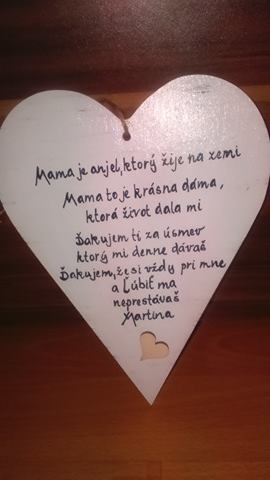 Mama je anjel, ktorý žije na zemi
Mama to je krásna dáma,
ktorá život dala mi
Ďakujem ti za úsmev
ktorý mi denne dávaš
Ďakujem, že si vždy pri mne
a ľúbiť ma
neprestávaš
Martina